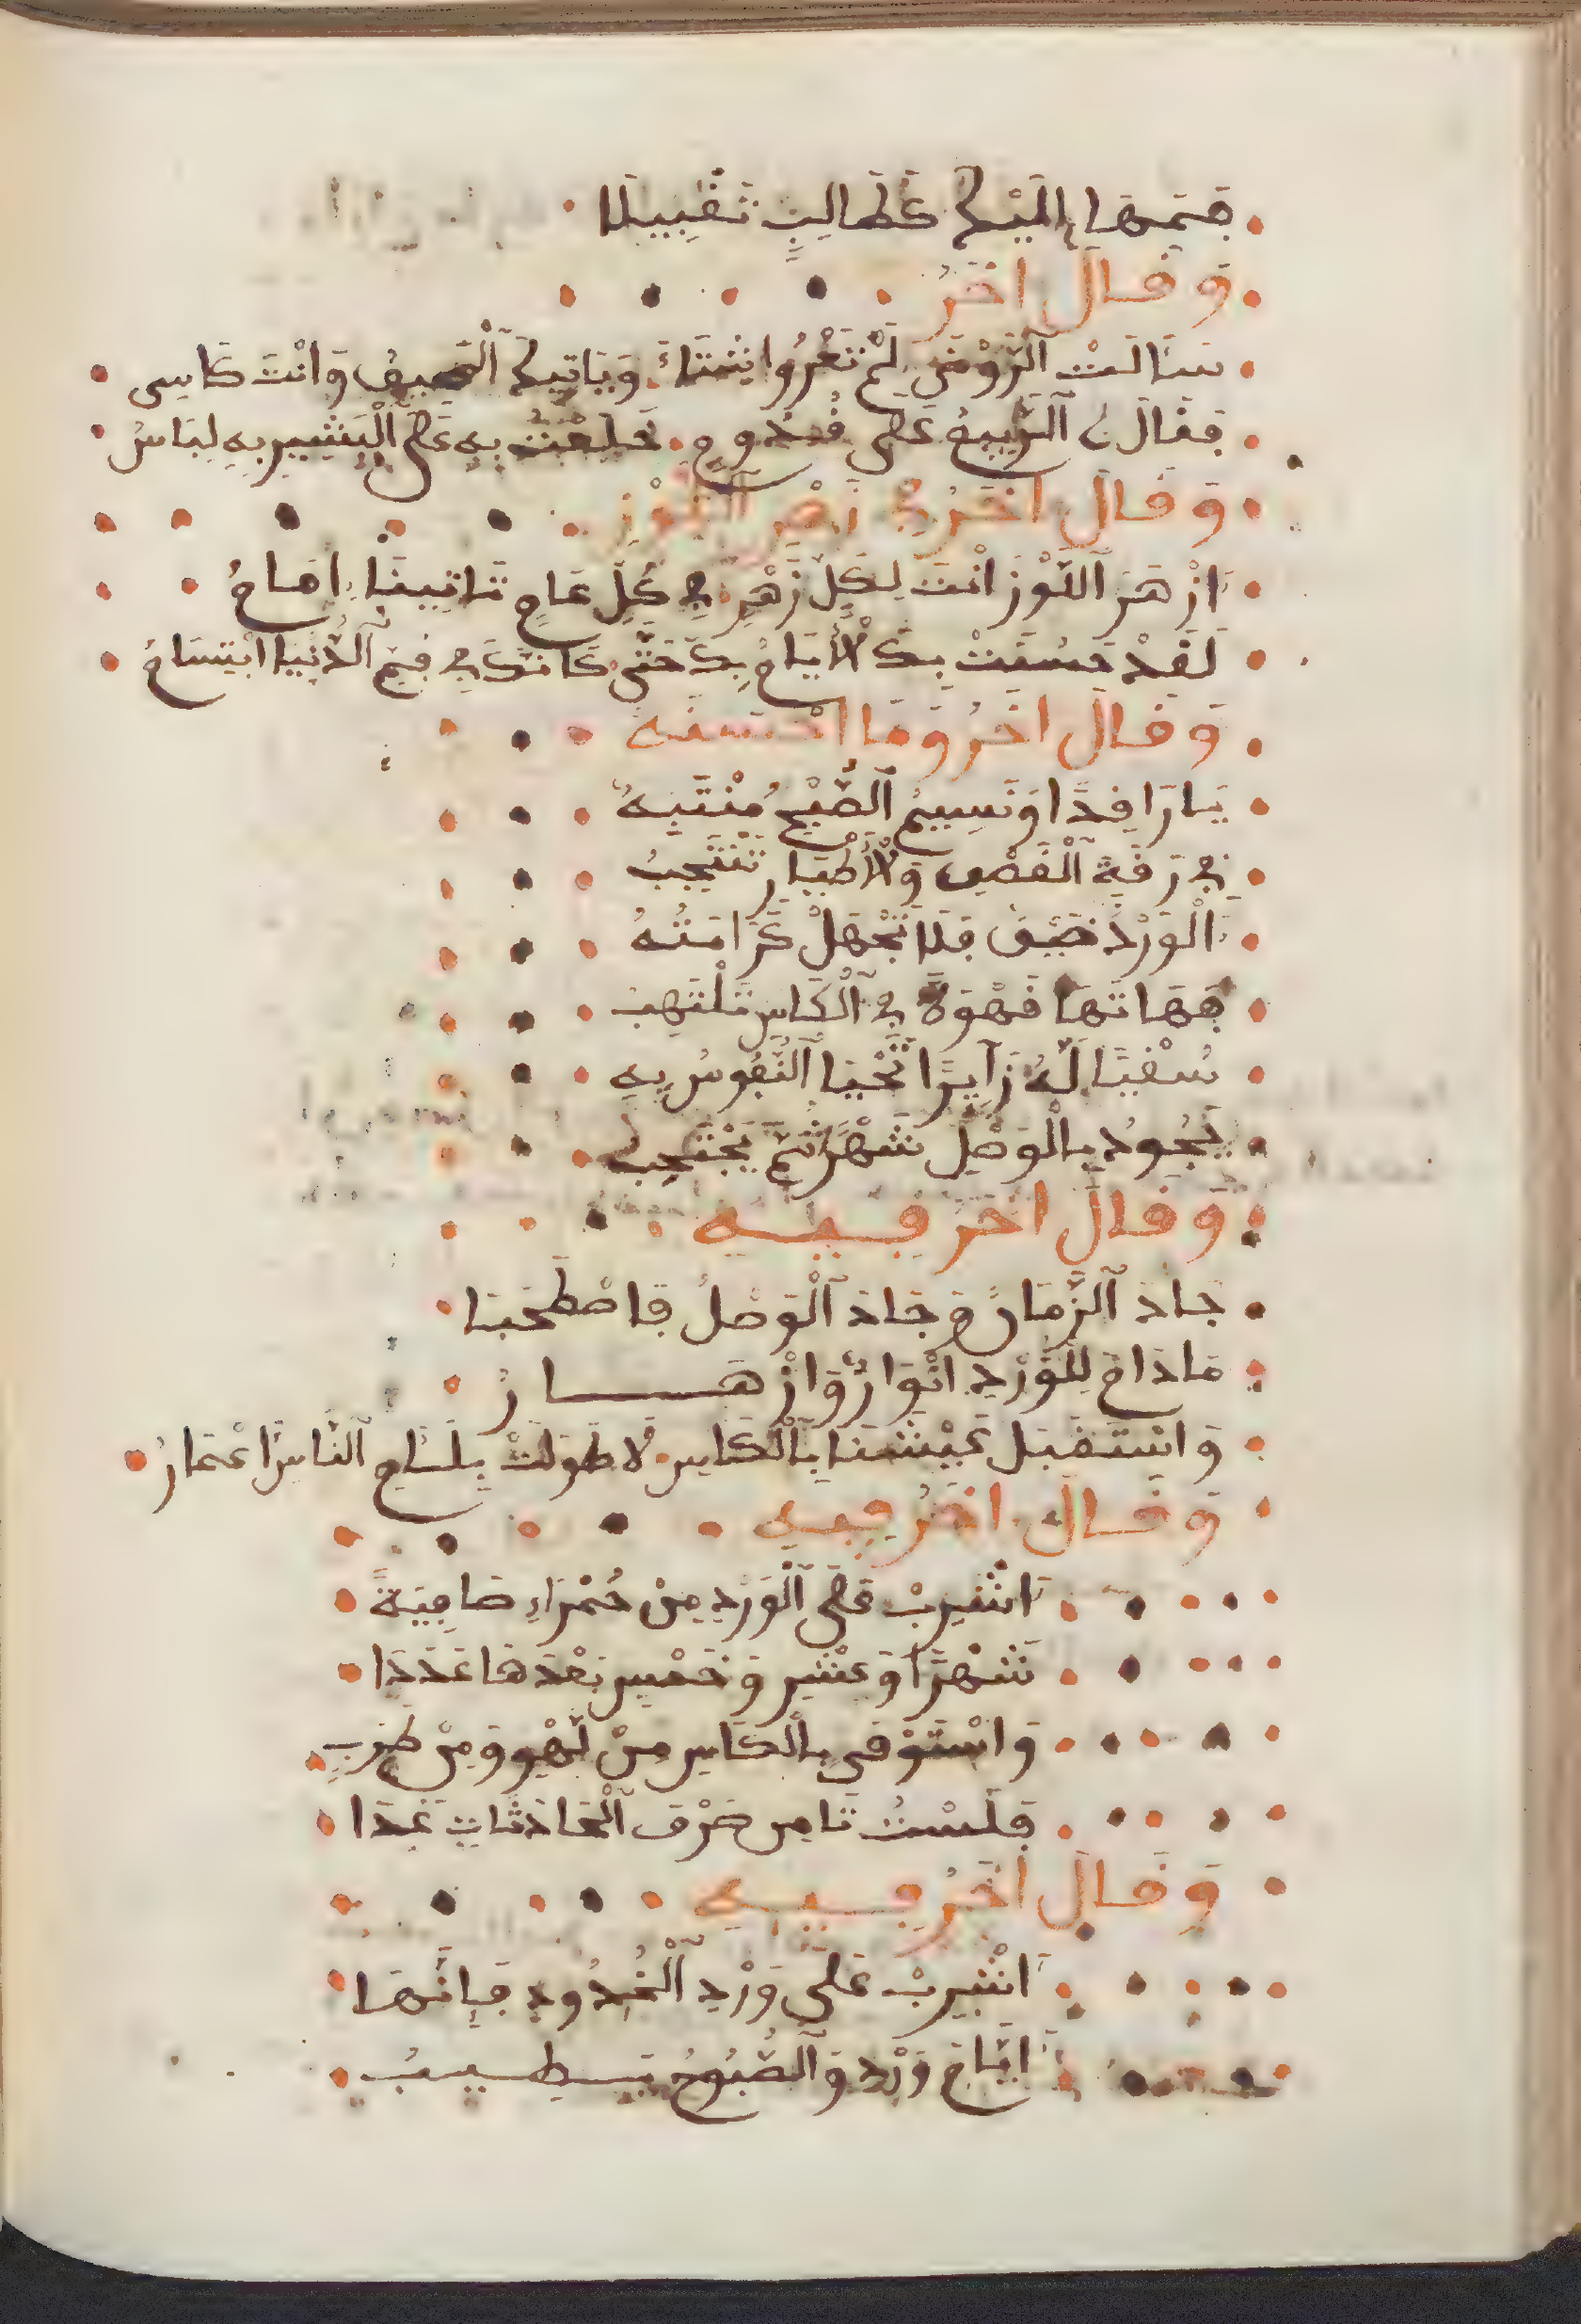 فمها إليك كطالب تقبيلا
وقال اخر
سالت الروض لم تعروا شتاء وياتيك الصيف وانت كاسي
فقال الربيع على قدوم خلعت به على البشير به لباس
وقال اخر في زهر اللوز
ازهر اللوز انت لكل زهر في كل عام تاتينا امام
لقد حسنت بك الأيام بك حتى كانك في فم الدنيا ابتسام
وقال اخر وما احسنه
يا راقدا ونسيم الصبح منتبه
في رقة الغصن والأطيار تنتحب
الورد ضيف فلا تجهل كرامته
فهاتها قهوة في الكاس تلتهب
سقيا له زايرا تحيا النفوس به
يجود بالوصل شهرا ثم يجتحب
وقال اخر فيه
جاد الزمان وجاد الوصل فاصطحبنا
مادام للورد انوار وازهار
واستقبل عيشنا بالكاس لا طولت للناس اعمار
وقال اخر فيه
اشرب على الورد من حمراء صافية
شهرا وعشر وخمس بعدها عددا
واستوفي بالكاس من لهو ومن طرب
فلست تامن صرف الحادثات غدا
وقال اخر فيه
اشرب على ورد الخدود فإنها
ايام ورد والصبوح يطيب